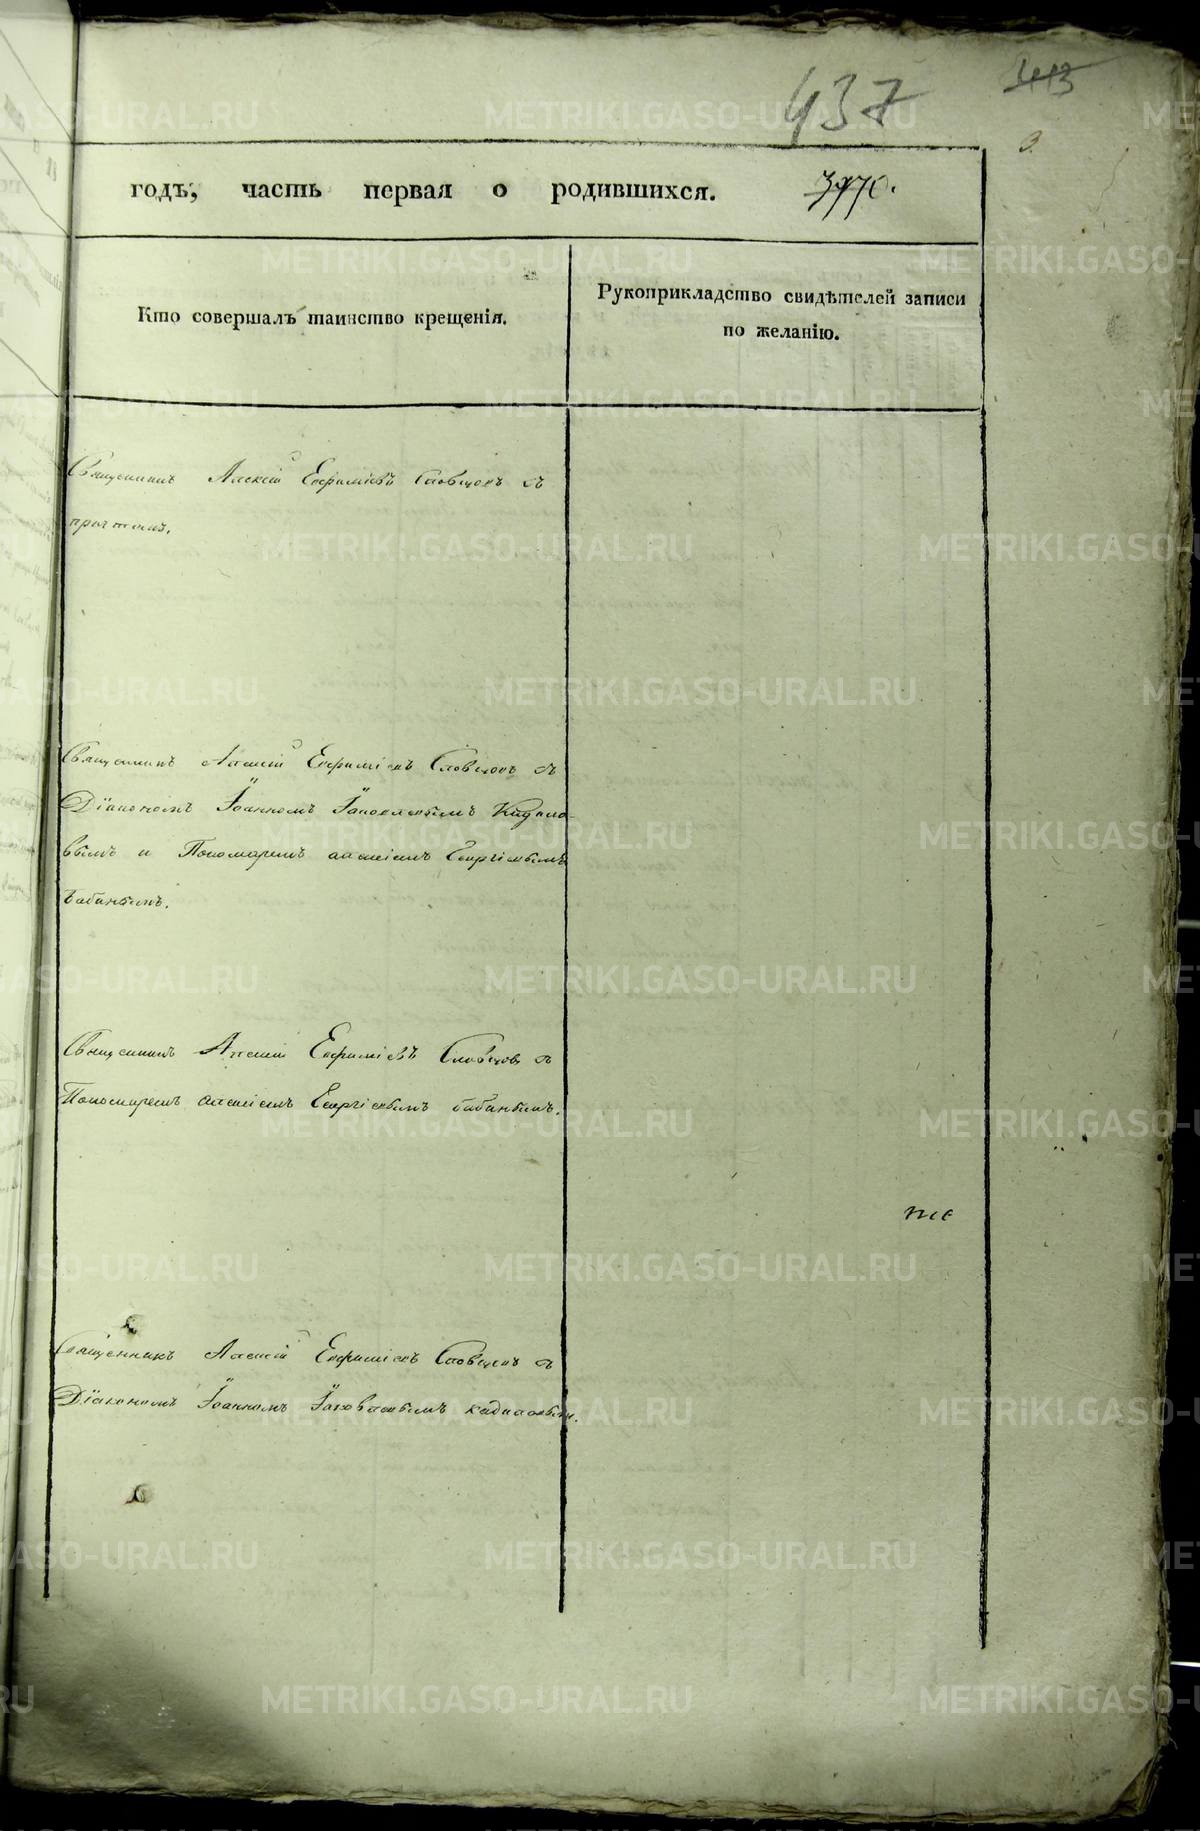 437
413
годъ, часть первая о родившихся. 3970.
Кто совершалъ таинство крещенія.
Рукоприкладство свидѣтелей записи
по желанію.
Священникъ Алексій Евфиміевъ Словцовъ съ
причтомъ.
Священникъ Алексій Евфиміевъ Словцовъ съ
Діакономъ Іоанномъ Іаковлевымъ Кадило-
вымъ и Пономаремъ Алексіемъ Георгіевымъ
Бабинымъ.
Священникъ Алексій Евфиміевъ Словцовъ съ
Пономаремъ Алексіемъ Георгіевымъ
Священникъ Алексій Евфиміевъ Словцовъ съ
Діакономъ Іоанномъ Іаковлевымъ
METRIKI.GASO-URAL.RU